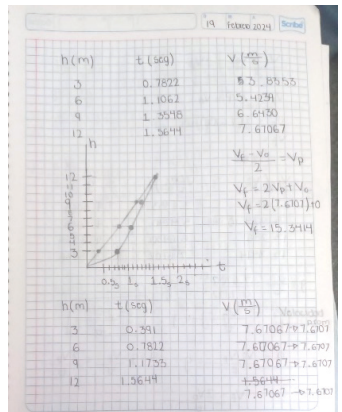 19 Febrero 2024 Scribe
h(m) t(seg) V(m/s)
3 0.7822 3.8353
6 1.1062 5.4239
9 1.3548 6.6430
12 1.5644 7.67067
h
(Vf - Vo)/2 = Vp
Vf = 2Vp + Vo
Vf = 2(7.6707)+0
Vf = 15.3414
12
9
6
3
0.5 1 1.5 2 t
h(m) t(seg) V(m/s)
3 0.391 7.67067 → 7.6707
6 0.7822 7.67067 → 7.6707
9 1.1733 7.67067 → 7.6707
12 1.5644 1.5644
7.67067 → 7.6707